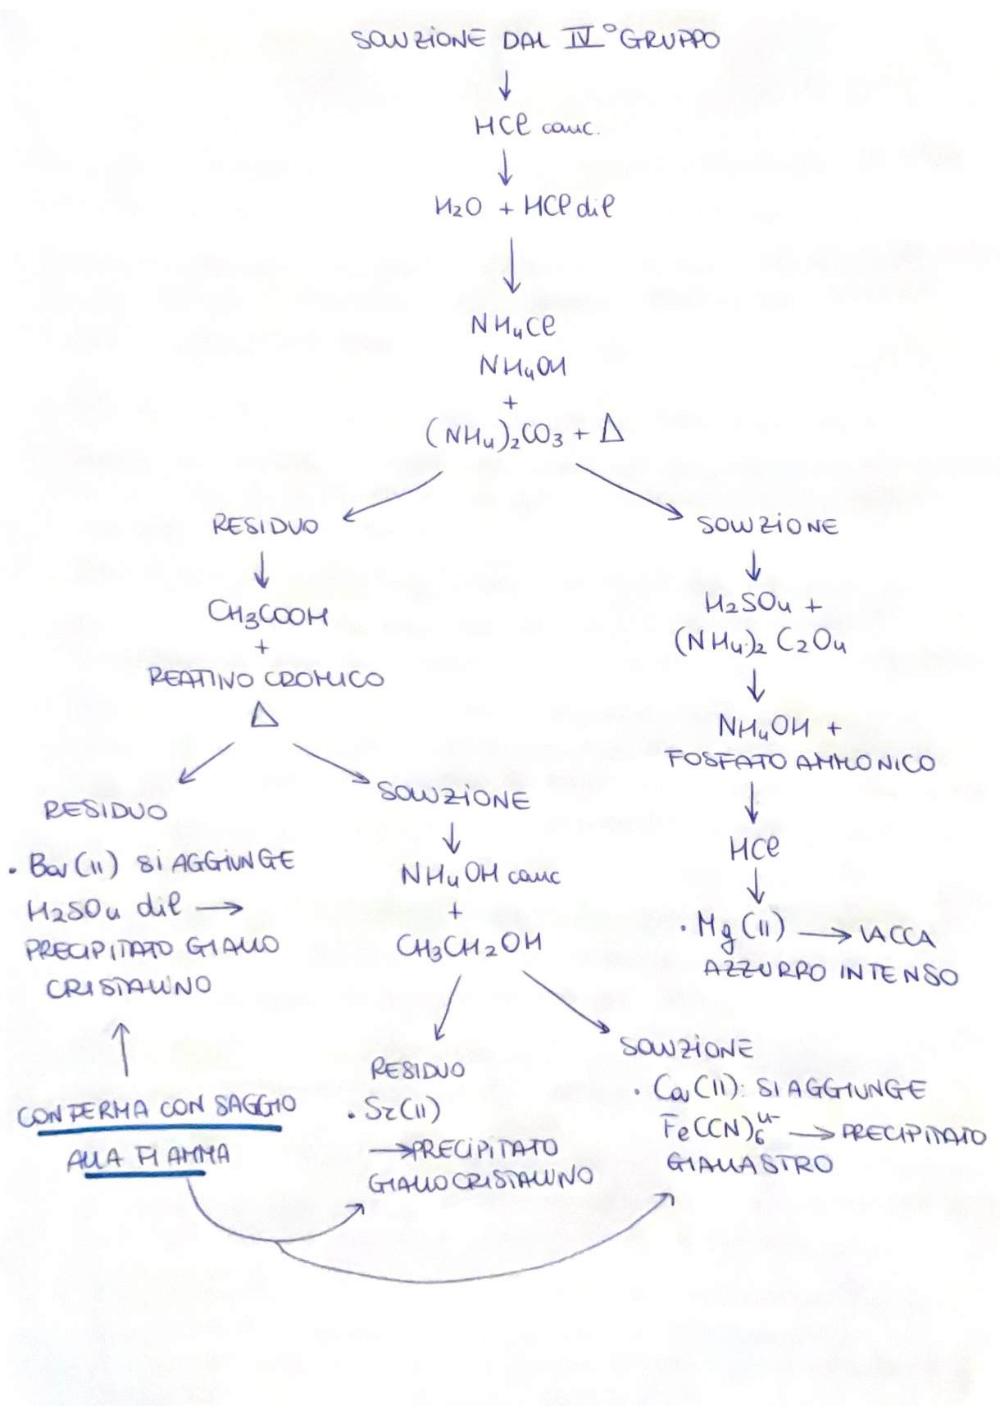 SOLUZIONE DAL IV° GRUPPO
↓
HCl conc.
↓
H2O + HCl dil
↓
NH4Cl
NH4OH
+
(NH4)2CO3 + Δ
RESIDUO
↓
CH3COOH
+
REATTIVO CROMICO
Δ
RESIDUO
• Ba(II) SI AGGIUNGE
H2SO4 dil →
PRECIPITATO GIALLO
CRISTALLINO
↑
CONFERMA CON SAGGIO
ALLA FIAMMA
SOLUZIONE
↓
NH4OH conc
+
CH3CH2OH
RESIDUO
• Sr(II)
→ PRECIPITATO
GIALLO CRISTALLINO
SOLUZIONE
• Ca(II): SI AGGIUNGE
Fe(CN)6 4- → PRECIPITATO
GIALLASTRO
SOLUZIONE
↓
H2SO4 +
(NH4)2 C2O4
↓
NH4OH +
FOSFATO AMMONICO
↓
HCl
↓
• Mg(II) → LACCA
AZZURRO INTENSO